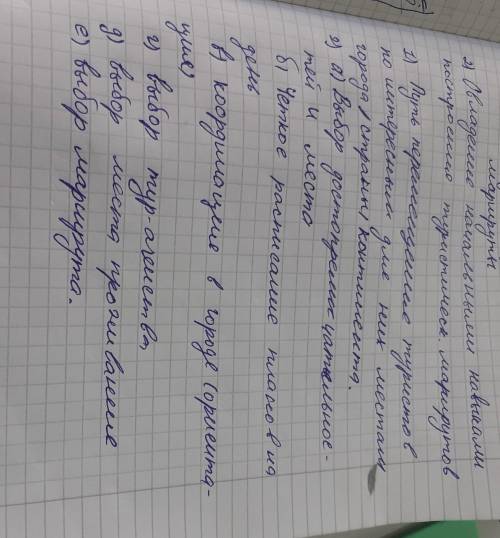 маршруты
2) Овладение начальными навыками
построению туристичес. маршрутов
1) Путь перемещение туристов
по интересным для них местам
города, страны, континента.
2) а) Выбор достопримечательнос-
тей и место
б) Четкое расписание планов на
день
в) координацие в городе (ориента-
цие)
г) выбор тур. агенства,
д) выбор места проживание
е) выбор маршрута.